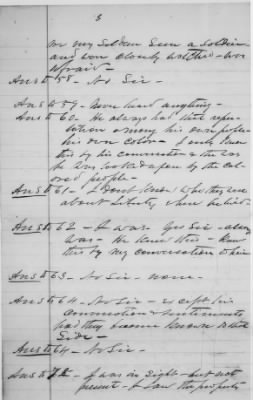 3
or my Soldier Seen a Soldier
and was closely watched - was
afraid -
Ans to 58 - No Sir -
Ans to 59 - Never heard anything -
Ans to 60 - He always had that repu-
tation among his own people
his own color - I only know
this by his conversation & the
he was looked upon by the col-
ored people -
Ans to 61 - I don't know
about
Ans to 62 - I was Yes Sir - always
was - He knew this - knew
this by my conversation
Ans to 63 - No Sir - none -
Ans to 64 - No Sir - except his
conversation & sentiments
had they become known
Side -
Ans to 64 - No Sir -
Ans to 72 - I was in Sight - but not
present - I saw the property